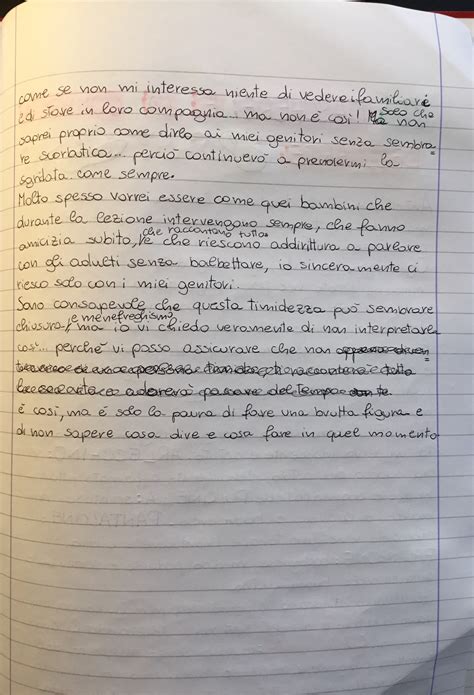 come se non mi interessa niente di vedere i familiari
e di stare in loro compagnia... ma non è così! solo che non
saprei proprio come dirlo ai miei genitori senza sembra-
re scorbutica... perciò continuerò a prendermi la
sgridata come sempre.
Molto spesso vorrei essere come quei bambini che
durante la lezione intervengono sempre, che fanno
amicizia subito, che raccontano tutto e che riescono addirittura a parlare
con gli adulti senza balbettare, io sinceramente ci
riesco solo con i miei genitori.
Sono consapevole che questa timidezza può sembrare
chiusura e menefreghismo, ma io vi chiedo veramente di non interpretarla
così... perché vi posso assicurare che non
è così, ma è solo la paura di fare una brutta figura e
di non sapere cosa dire e cosa fare in quel momento